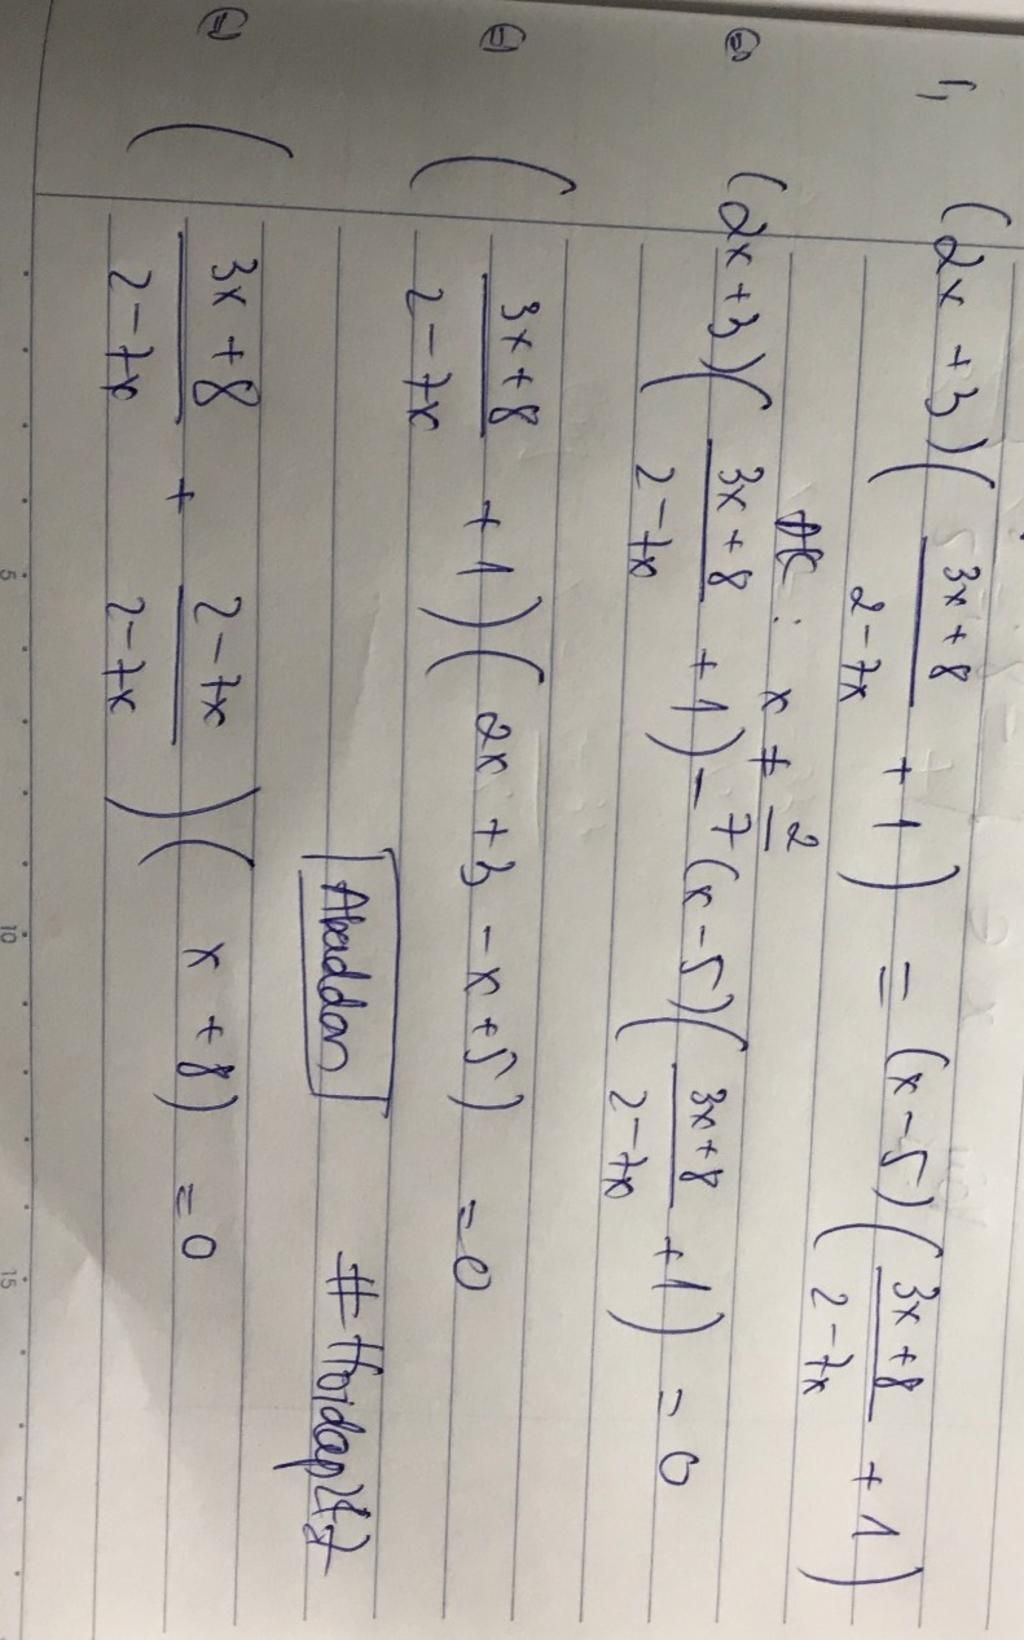 1, (2x + 3)(3x + 8 / 2 - 7x + 1) = (x - 5)(3x + 8 / 2 - 7x + 1)
ĐK: x ≠ 2/7
⇔ (2x + 3)(3x + 8 / 2 - 7x + 1) - (x - 5)(3x + 8 / 2 - 7x + 1) = 0
⇔ (3x + 8 / 2 - 7x + 1)(2x + 3 - x + 5) = 0
Abaddon # Hoidap247
⇔ (3x + 8 / 2 - 7x + 2 - 7x / 2 - 7x)(x + 8) = 0
5 10 15